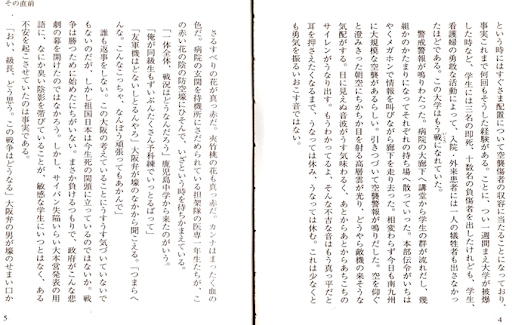 という時にはすぐさま配置について空襲傷害者の収容に当たることになっており、
事実これまで何回もそうした経験がある。ことに、つい一週間まえ大学が被爆
した時など、学生には三名の即死、十数名の負傷者を出したけれども、学生、
看護婦の勇敢な活動によって、入院・外来患者には一人の犠牲者も出さなかっ
たほどである。この大学はもう戦になれていた。
警戒警報が鳴りわたった。病院の大廊下へ講堂から学生の群が流れだし、幾
組かのかたまりになってそれぞれの持ち場へ散っていった。本部伝令がいちは
やくメガホンで情報を叫びながら廊下を走り去った。相変わらず今日も南九州
に大規模な空襲があるらしい。引きつづいて空襲警報が鳴りだした。空を仰ぐ
と澄みきった朝空にちかちか目を射る高層雲が光り、どうやら敵機の来そうな
気配がする。目に見えぬ音波がうす気味わるく、あとからあとからあちこちの
サイレンがうなり出す。もうわかってるよ、そんな不吉な音はもう真っ平だと
耳を押さえたくなるまで、うなっては休み、うなっては休む。これは少なくと
も勇気を振るいおこす音ではない。
4
その直前
さるすべりの花が真っ赤だ。夾竹桃の花も真っ赤だ。カンナはまったく血の
色だ。病院の玄関を待機所にさだめられている担架隊の医専一年生たちが、こ
の赤い花の陰の防空壕にひそんで、いざという時を待ちかまえている。
「一体全体、戦況はどうなんだろう」鹿児島中学から来たのがいう。
「俺が同級生もずいぶんたくさん予科練でいっとるばって」
「友軍機はどないしとるんやろ」大阪弁が壕のなかから聞こえる。「つまらへ
んな。こんなこっちゃ、なんぼう頑張ってもあかんで」
誰も返事をしない。この大阪の考えていることにうすうす気づいていないで
もないのだが、しかし祖国日本は今生死の関頭に立っているのではないか。戦
争は勝つために始めたにちがいない。まさか負けるつもりで、政府がこんな悲
劇の幕を開けたのではなかろう。しかし、サイパン失陥いらい大本営発表の用
語に、なにか臭い陰影を帯びていることが、敏感な学生にいつとはなく、ある
不安を起こさせていたのは事実である。
「おい、級長、どう思う。この戦争はどうなる」大阪弁の男が壕のせまい口か
5